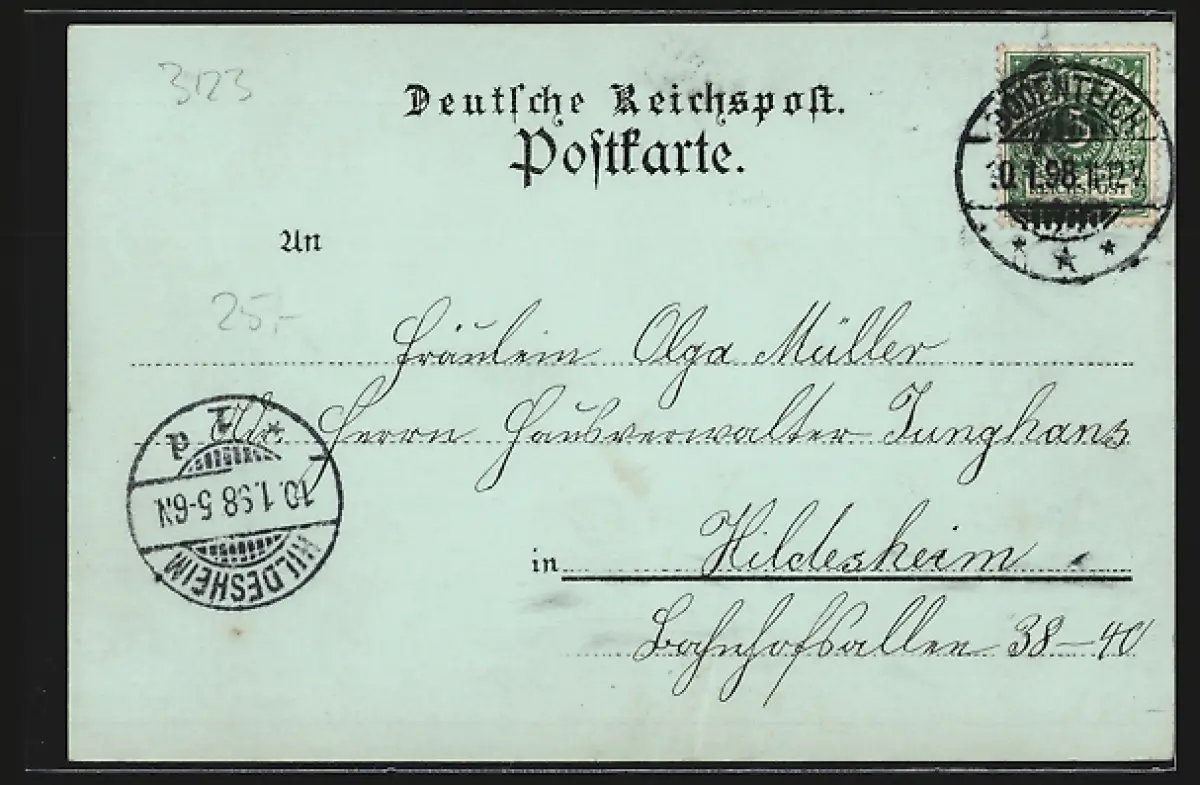 3123
Deutsche Reichspost.
Postkarte.
BODENTEICH
10.1.98.11-12V.
5
REICHSPOST
An
25,-
Fräulein Olga Müller
Adr. Herrn Hausverwalter Junghans
in Hildesheim
Bahnhofsallee 38-40
HILDESHEIM
10.1.98 5-6N.
1
d